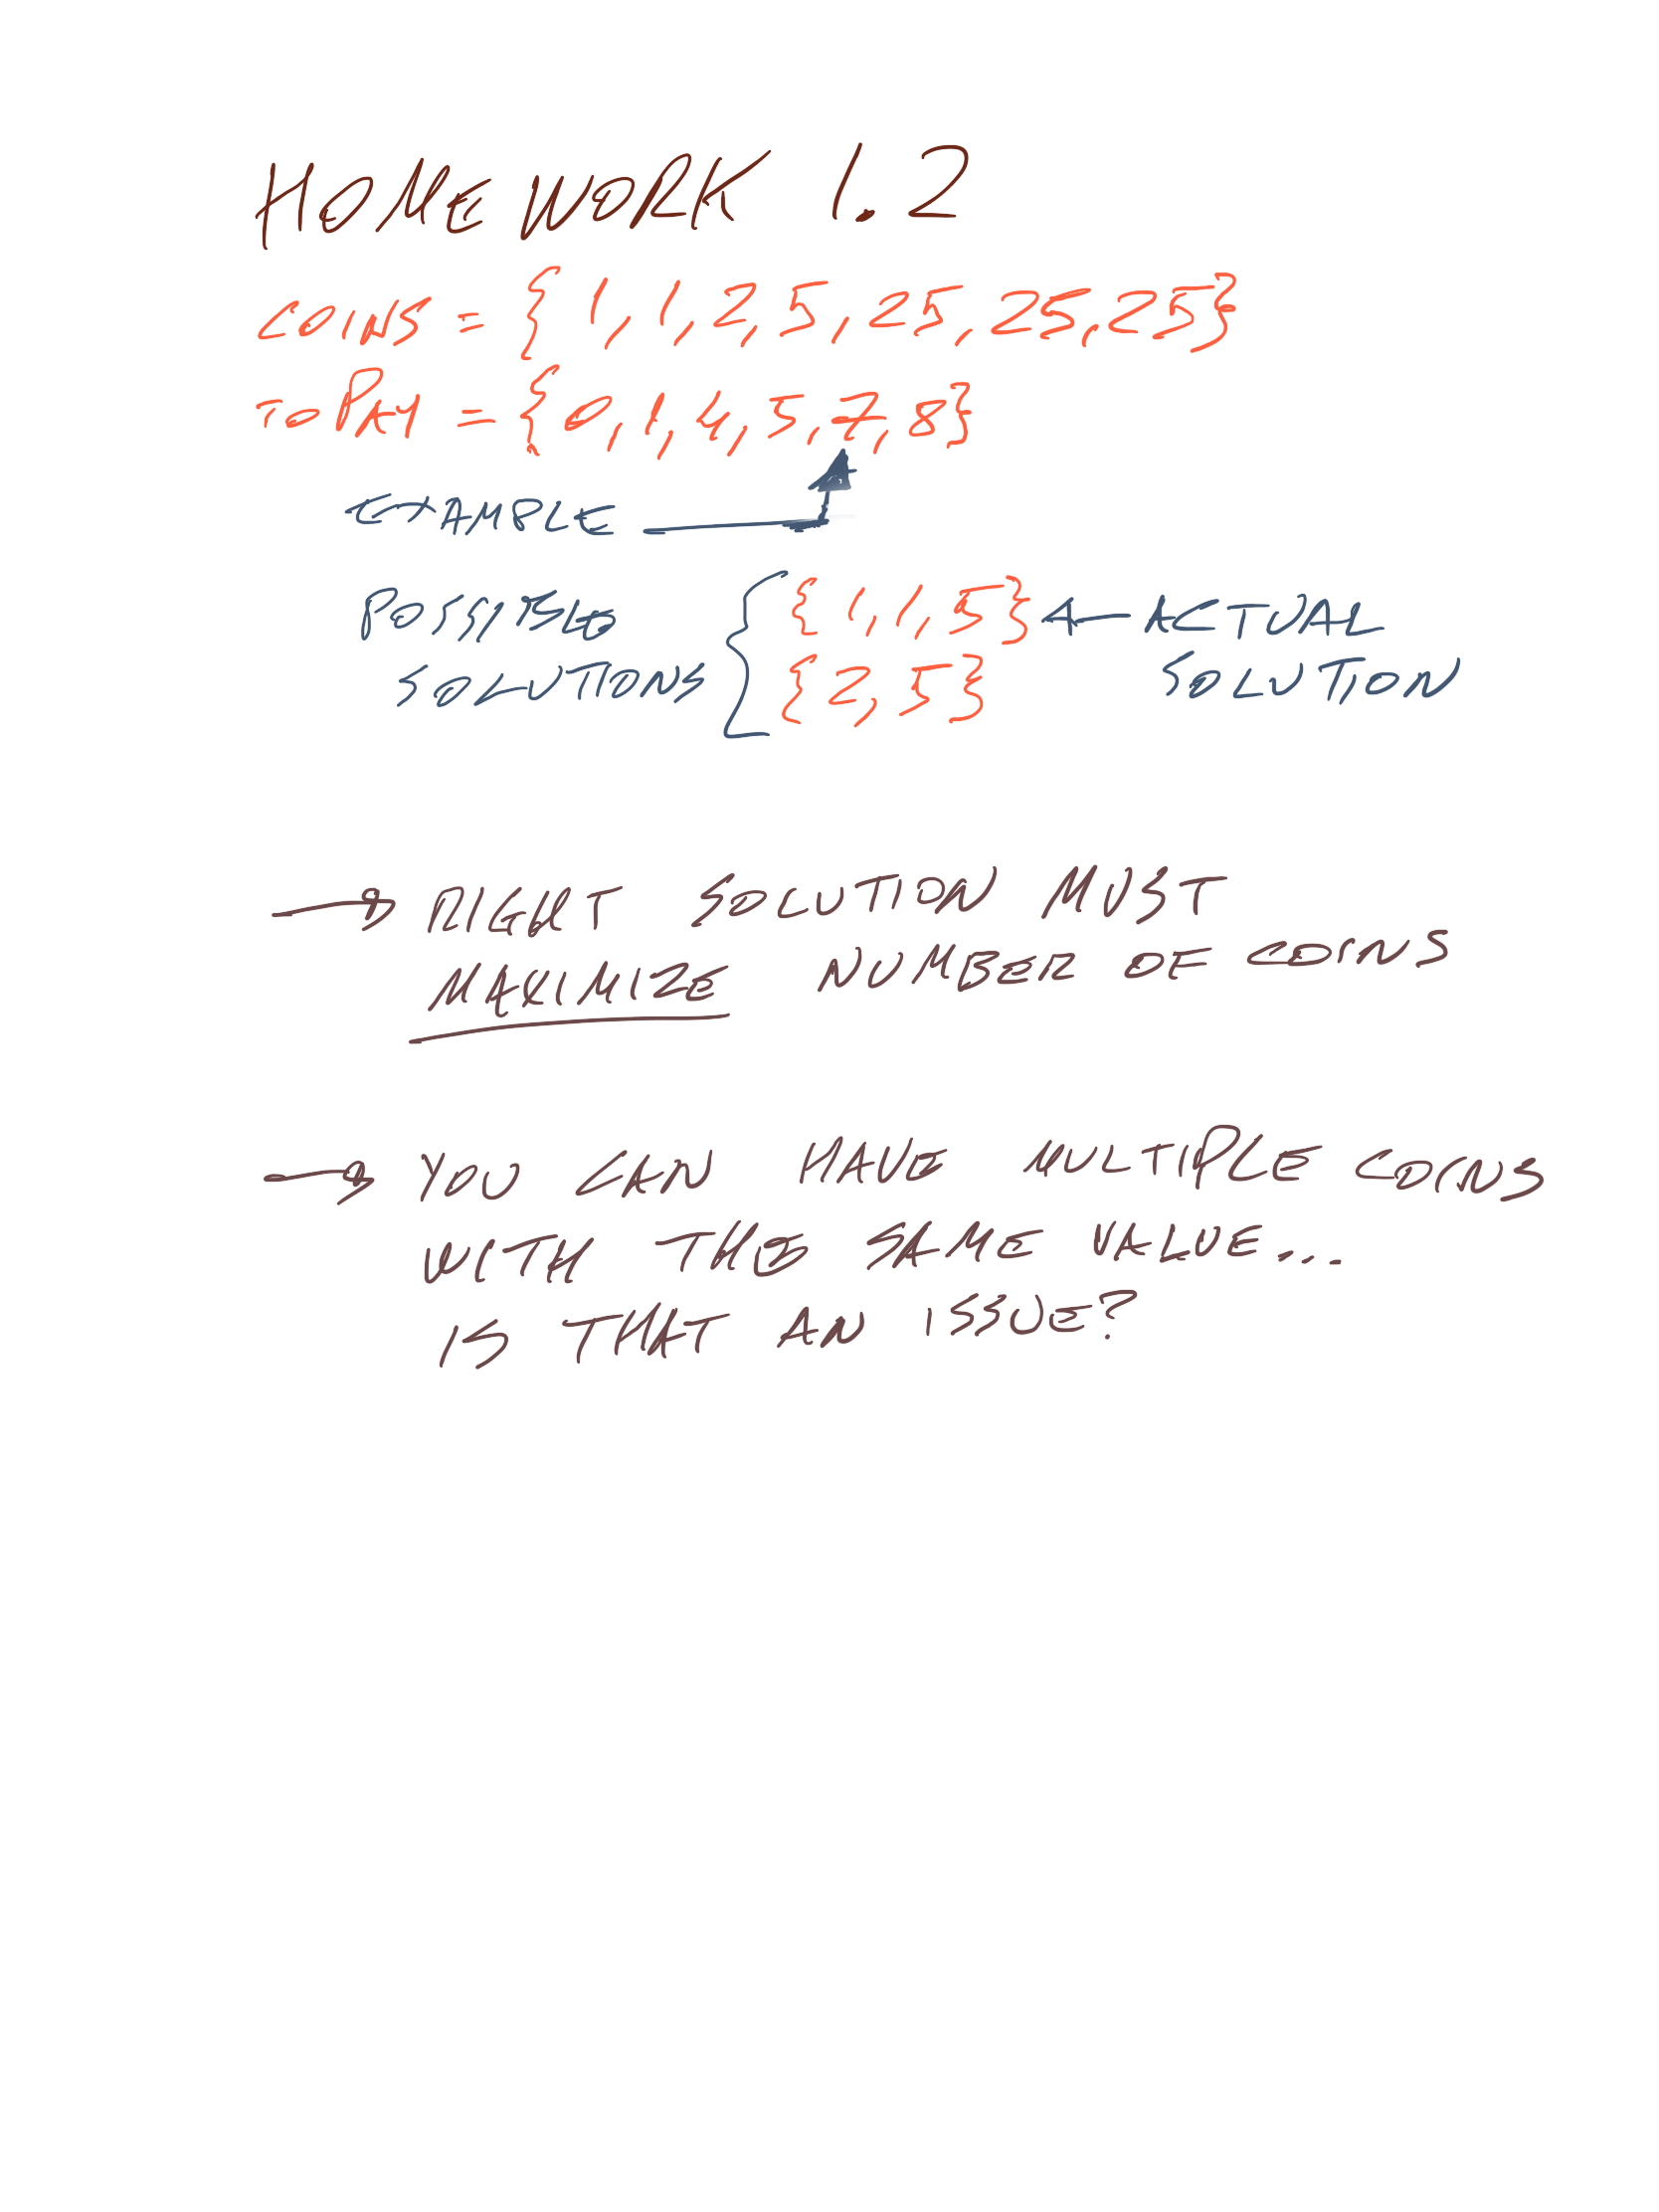 HOMEWORK 1.2
COINS = { 1, 1, 2, 5, 25, 25, 25}
TO PAY = {0, 1, 4, 5, 7, 8}
EXAMPLE
POSSIBLE { {1, 1, 5} ← ACTUAL
SOLUTIONS {2, 5} SOLUTION
→ RIGHT SOLUTION MUST
MAXIMIZE NUMBER OF COINS
→ YOU CAN HAVE MULTIPLE COINS
WITH THE SAME VALUE...
IS THAT AN ISSUE?